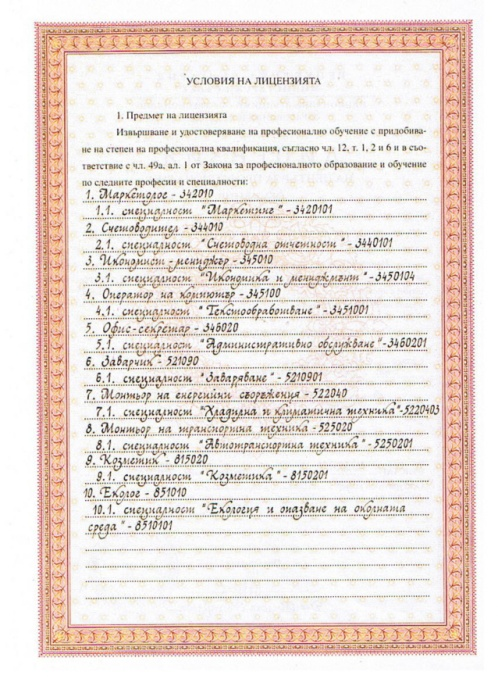 УСЛОВИЯ НА ЛИЦЕНЗИЯТА
1. Предмет на лицензията
Извършване и удостоверяване на професионално обучение с придобива-
не на степен на професионална квалификация, съгласно чл. 12, т. 1, 2 и 6 и в съо-
тветствие с чл. 49а, ал. 1 от Закона за професионалното образование и обучение
по следните професии и специалности:
1. Маркетолог - 342010
1.1. специалност "Маркетинг" - 3420101
2. Счетоводител - 344010
2.1. специалност "Счетоводна отчетност" - 3440101
3. Икономист - мениджър - 345010
3.1. специалност "Икономика и мениджмънт" - 3450104
4. Оператор на компютър - 345100
4.1. специалност "Текстообработване" - 3451001
5. Офис-секретар - 346020
5.1. специалност "Административно обслужване" - 3460201
6. Заварчик - 521090
6.1. специалност "Заваряване" - 5210901
7. Монтьор на енергийни съоръжения - 522040
7.1. специалност "Хладилна и климатична техника" - 5220403
8. Монтьор на транспортна техника - 525020
8.1. специалност "Автотранспортна техника" - 5250201
9. Козметик - 815020
9.1. специалност "Козметика" - 8150201
10. Еколог - 851010
10.1. специалност "Екология и опазване на околната
среда" - 8510101